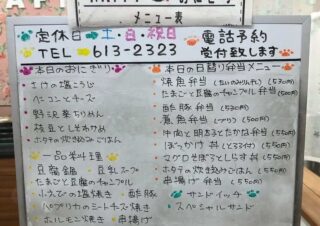 メニュー表
定休日 土・日・祝日
TEL 613-2323
電話予約
受付致します
本日のおにぎり
ベーコンとチーズ
野沢菜ちりめん
枝豆としそわかめ
ホタテの炊き込みごはん
一品料理
豆腐鍋 豆乳スープ
たまごと豆腐のチャンプル
小えびの塩焼き 酢豚
パプリカのシートチーズ焼き
ホルモン焼き 串揚げ
本日の日替り弁当メニュー
焼魚弁当
たまごと豆腐のチャンプル弁当 (500円)
酢豚弁当 (530円)
煮魚弁当
牛肉と明太子たかな弁当 (550円)
ぼっかけ丼 (とろろ付) (550円)
マグロそぼろとしらす丼 (550円)
ホタテの炊き込みごはん (550円)
串揚げ弁当 (550円)
サンドイッチ
スペシャルサンド